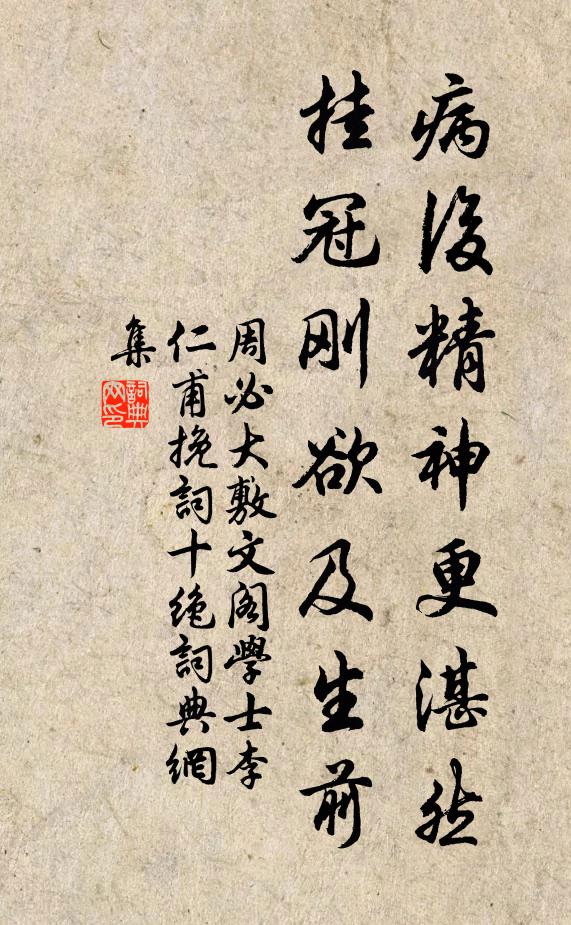 病後精神更湛然
挂冠刚欲及生前
周必大敷文阁學士李
仁甫挽詞十绝詞典網
集
詞典
网印